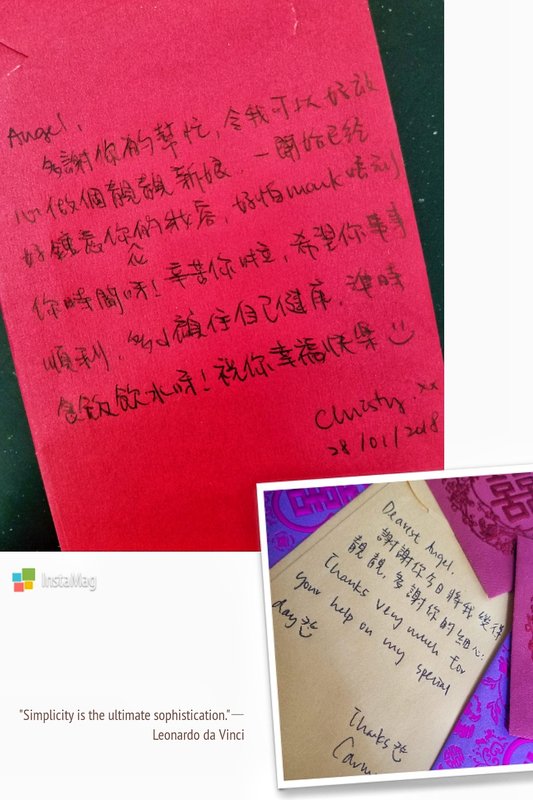 Angel,
多謝你的幫忙,令我可以好放
心做個靚靚新娘.一開始已經
好鍾意你化的妝容,好怕mark唔到
你時間呀!辛苦你啦,希望你事事
順利,多d顧住自己健康,準時
食飯飲水呀!祝你幸福快樂
Christy.xx
28/01/2018
Dearest Angel,
謝謝你今日將我變得
靚靚,多謝你的細心.
Thanks very much for
your help on my special
day
Thanks
InstaMag
"Simplicity is the ultimate sophistication."—
Leonardo da Vinci